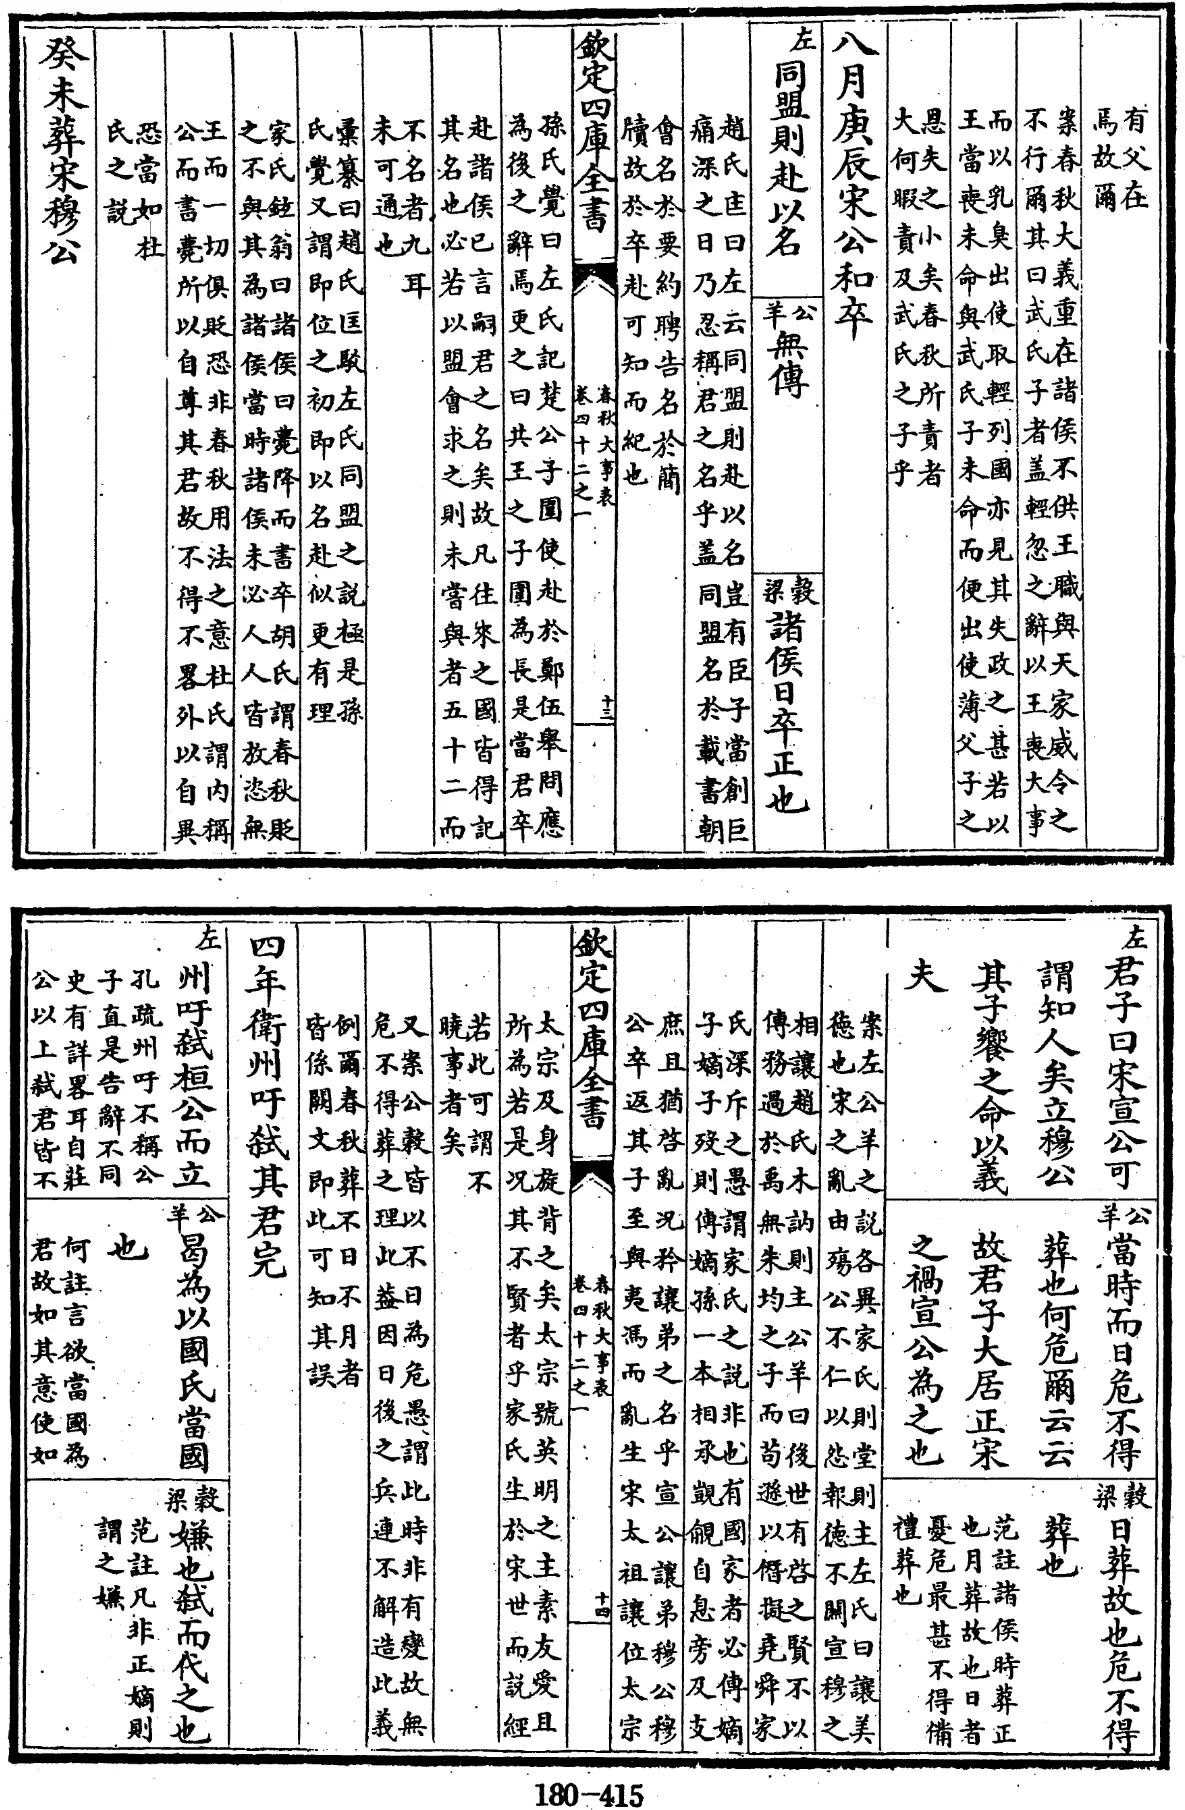 有父在
焉故爾
案春秋大義重在諸侯不供王職與天家威令之
不行爾其曰武氏子者盖輕忽之辭以王喪大事
而以乳臭出使取輕列國亦見其失政之甚若以
王當喪未命與武氏子未命而便出使薄父子之
恩失之小矣春秋所責者
大何暇責及武氏之子乎
八月庚辰宋公和卒
左
同盟則赴以名
公羊
無傳
穀梁
諸侯日卒正也
趙氏匡曰左云同盟則赴以名豈有臣子當創巨
痛深之日乃忍稱君之名乎盖同盟名於載書朝
會名於要約聘告名於簡
牘故於卒赴可知而紀也
欽定四庫全書
春秋大事表
卷四十二之一
十三
孫氏覺曰左氏記楚公子圍使赴於鄭伍舉問應
為後之辭焉更之曰共王之子圍為長是當君卒
赴諸侯已言嗣君之名矣故凡往來之國皆得記
其名也必若以盟會求之則未嘗與者五十二而
不名者九耳
未可通也
彙纂曰趙氏匡駮左氏同盟之說極是孫
氏覺又謂即位之初即以名赴似更有理
家氏鉉翁曰諸侯曰薨降而書卒胡氏謂春秋貶
之不與其為諸侯當時諸侯未必人人皆放恣無
王而一切俱貶恐非春秋用法之意杜氏謂内稱
公而書薨所以自尊其君故不得不畧外以自異
恐當如杜
氏之説
癸未葬宋穆公
左
君子曰宋宣公可
謂知人矣立穆公
其子饗之命以義
夫
公羊
當時而日危不得
葬也何危爾云云
故君子大居正宋
之禍宣公為之也
穀梁
日葬故也危不得
葬也
范註諸侯時葬正
也月葬故也日者
憂危最甚不得備
禮葬也
案左公羊之說各異家氏則堂則主左氏曰讓美
徳也宋之亂由殤公不仁以怨報德不關宣穆之
相讓趙氏木訥則主公羊曰後世有啓之賢不以
傳務過於禹無朱均之子而苟遜以僭擬堯舜家
氏深斥之愚謂家氏之說非也有國家者必傳嫡
子嫡子歿則傳嫡孫一本相承覬覦自息旁及支
庶且猶啓亂況矜讓弟之名乎宣公讓弟穆公穆
公卒返其子至與夷馮而亂生宋太祖讓位太宗
欽定四庫全書
春秋大事表
卷四十二之一
十四
太宗及身旋背之矣太宗號英明之主素友愛且
所為若是况其不賢者乎家氏生於宋世而説經
若此可謂不
曉事者矣
又案公榖皆以不日為危愚謂此時非有變故無
危不得葬之理此葢因日後之兵連不解造此義
例爾春秋葬不日不月者
皆係闕文即此可知其誤
四年衛州吁弑其君完
左
州吁弑桓公而立
孔疏州吁不稱公
子直是告辭不同
史有詳畧耳自莊
公以上弑君皆不
公羊
曷為以國氏當國
也
何註言欲當國為
君故如其意使如
穀梁
嫌也弑而代之也
范註凡非正嫡則
謂之嫌
180-415